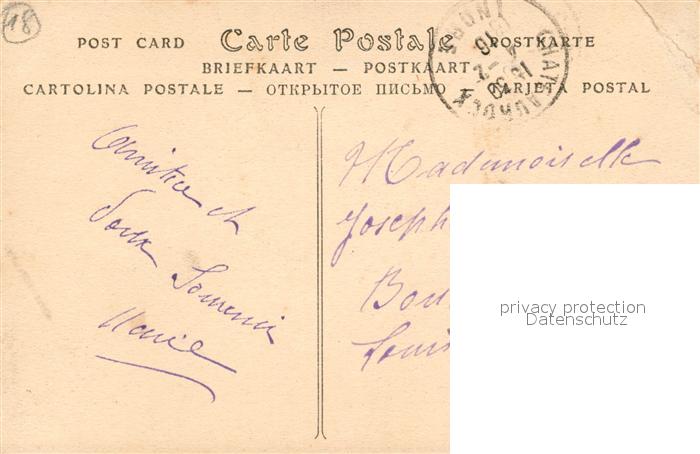 18
POST CARD Carte Postale POSTKARTE
BRIEFKAART — POSTKAART
CARTOLINA POSTALE — ОТКРЫТОЕ ПИСЬМО — TARJETA POSTAL
CHATEAUROUX INDRE
Amitié et
Doux Souvenir
Marie
Mademoiselle
Joseph
Bou
Louis
privacy protection
Datenschutz